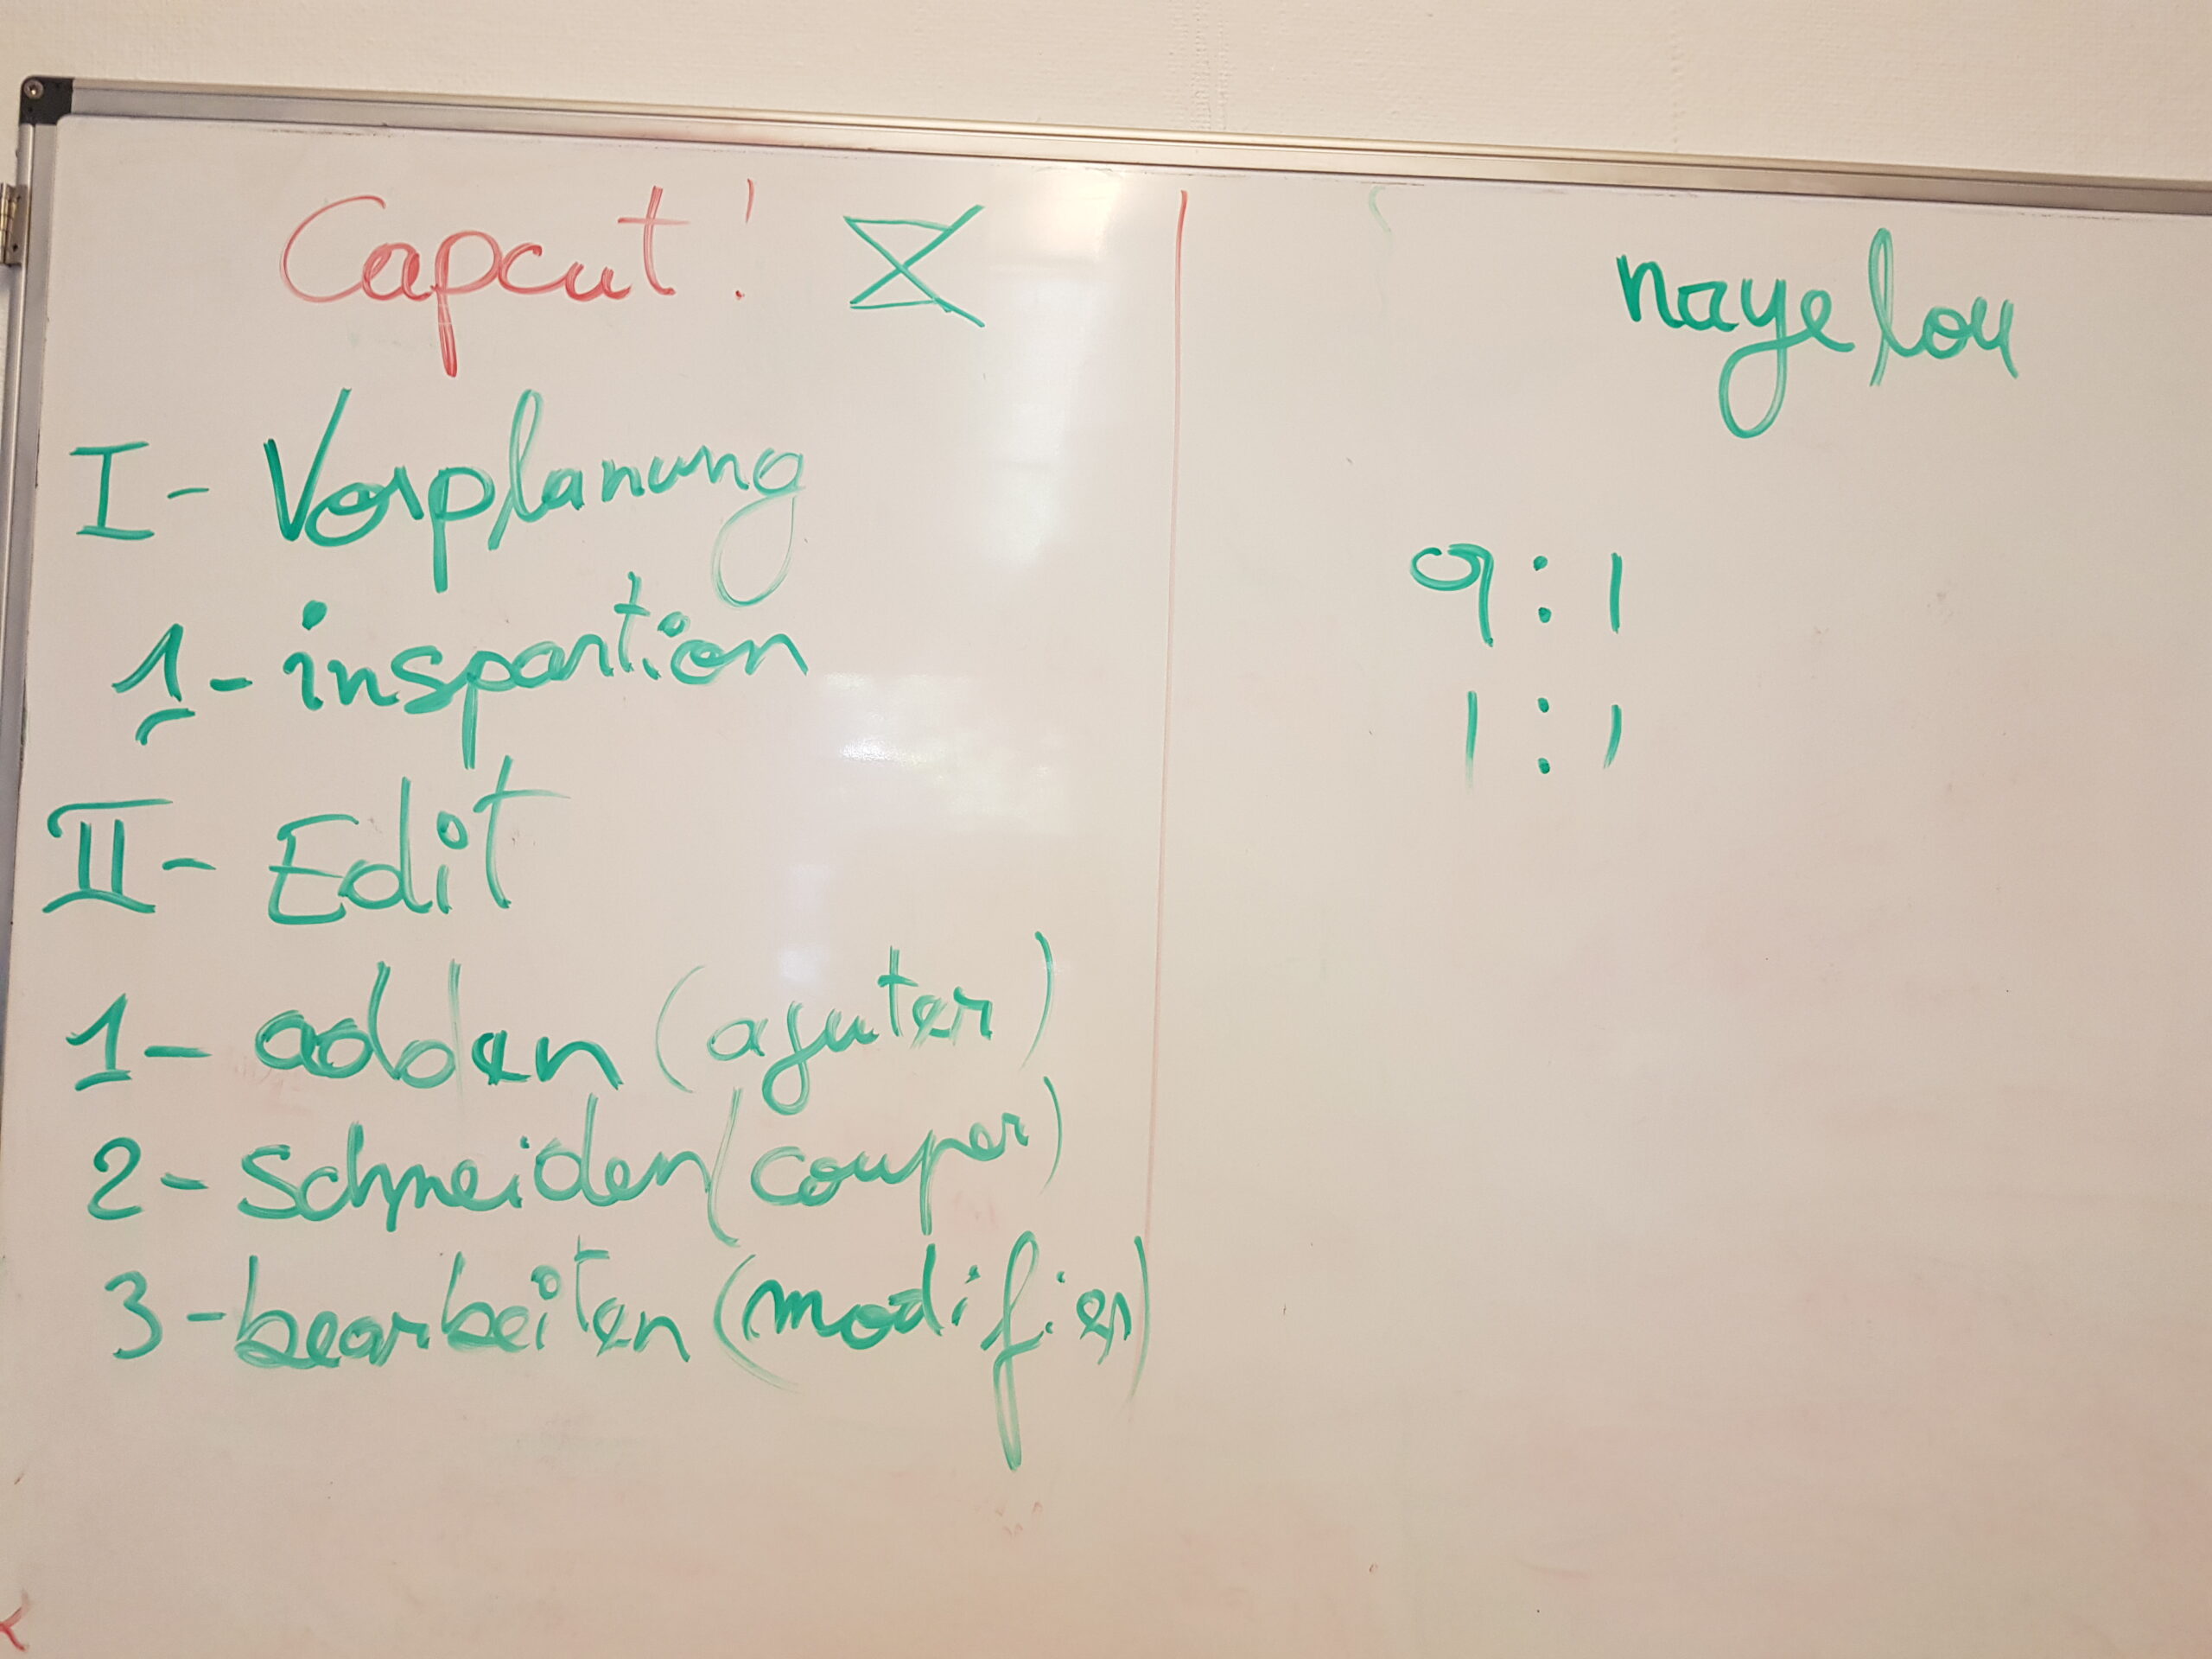 Capcut !
I- Vorplanung
1- inspartion
II- Edit
1- adden (ajuter)
2- Schneiden (couper)
3- bearbeiten (modifier)
nayelou
9 : 1
1 : 1